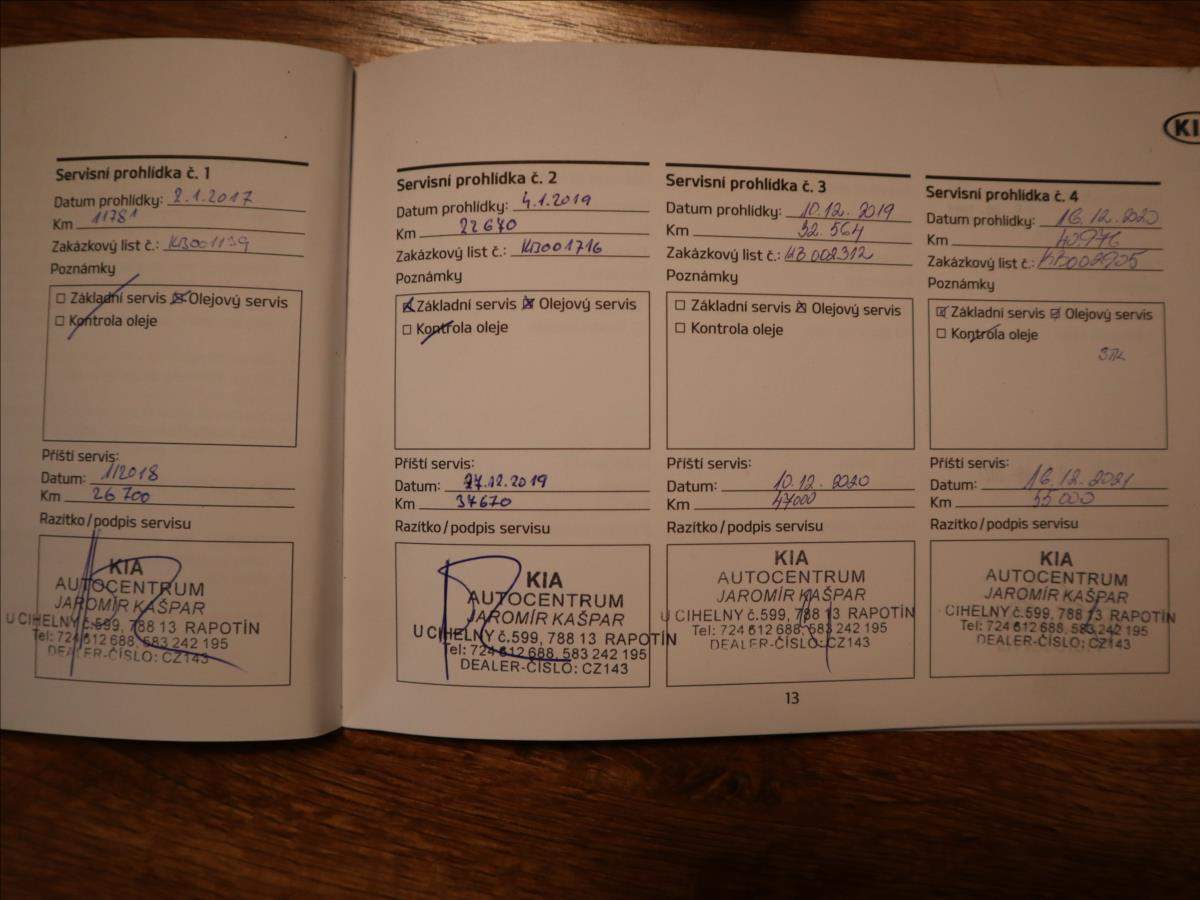 KI
Servisní prohlídka č. 1
Datum prohlídky: 2.1.2017
Km 11781
Zakázkový list č.: KB001139
Poznámky
Základní servis Olejový servis
Kontrola oleje
Příští servis:
Datum: 1/2018
Km 26 700
Razítko/podpis servisu
KIA
AUTOCENTRUM
JAROMÍR KAŠPAR
U CIHELNY č.599, 788 13 RAPOTÍN
Tel: 724 612 688, 583 242 195
DEALER-ČÍSLO: CZ143
Servisní prohlídka č. 2
Datum prohlídky: 4.1.2019
Km 22670
Zakázkový list č.: KB001716
Poznámky
Základní servis Olejový servis
Kontrola oleje
Příští servis:
Datum: .12.2019
Km 37670
Razítko/podpis servisu
KIA
AUTOCENTRUM
JAROMÍR KAŠPAR
U CIHELNY č.599, 788 13 RAPOTÍN
Tel: 724 612 688, 583 242 195
DEALER-ČÍSLO: CZ143
Servisní prohlídka č. 3
Datum prohlídky: 10.12.2019
Km 32.564
Zakázkový list č.: KB002312
Poznámky
Základní servis Olejový servis
Kontrola oleje
Příští servis:
Datum: 10.12.2020
Km 47000
Razítko/podpis servisu
KIA
AUTOCENTRUM
JAROMÍR KAŠPAR
U CIHELNY č.599, 788 13 RAPOTÍN
Tel: 724 612 688, 583 242 195
DEALER-ČÍSLO: CZ143
Servisní prohlídka č. 4
Datum prohlídky: 16.12.2020
Km 40976
Zakázkový list č.: KB002905
Poznámky
Základní servis Olejový servis
Kontrola oleje
STK
Příští servis:
Datum: 16.12.2021
Km 55000
Razítko/podpis servisu
KIA
AUTOCENTRUM
JAROMÍR KAŠPAR
CIHELNY č.599, 788 13 RAPOTÍN
Tel: 724 612 688, 583 242 195
DEALER-ČÍSLO: CZ143
13